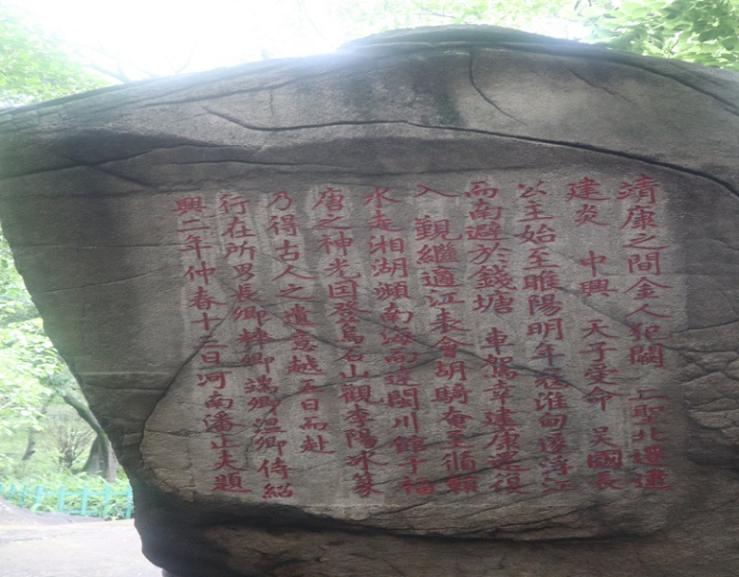 靖康之間金人犯闕 二聖北遷逮
建炎 中興 天子受命 吳國長
公主始至睢陽明年寇淮甸遂浮江
而南避於錢塘 車駕幸建康還復
入 覲繼適江表會胡騎奄至循贛
水走湘湖瀕南海而達閩川館于福
唐之神光因登烏石山觀李陽冰篆
乃得古人之遺意越五日而赴
行在所男長卿粹卿端卿溫卿侍紹
興二年仲春十三日河南潘正夫題